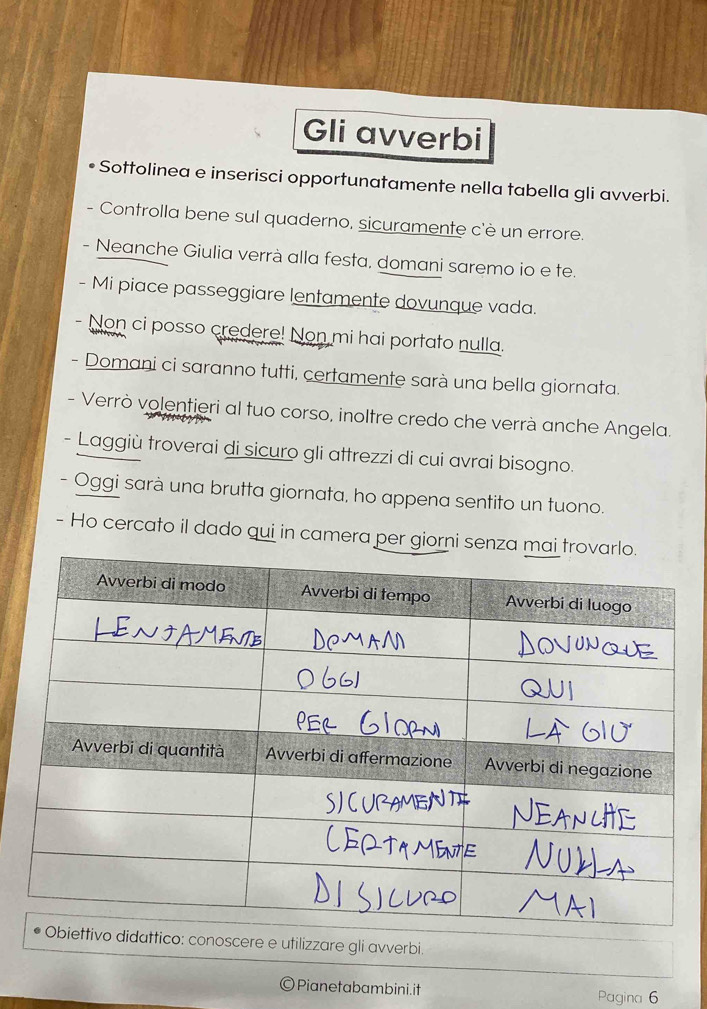 Gli avverbi
• Sottolinea e inserisci opportunatamente nella tabella gli avverbi.
- Controlla bene sul quaderno, sicuramente c'è un errore.
- Neanche Giulia verrà alla festa, domani saremo io e te.
- Mi piace passeggiare lentamente dovunque vada.
- Non ci posso credere! Non mi hai portato nulla.
- Domani ci saranno tutti, certamente sarà una bella giornata.
- Verrò volentieri al tuo corso, inoltre credo che verrà anche Angela.
- Laggiù troverai di sicuro gli attrezzi di cui avrai bisogno.
- Oggi sarà una brutta giornata, ho appena sentito un tuono.
- Ho cercato il dado qui in camera per giorni senza mai trovarlo.
Avverbi di modo Avverbi di tempo Avverbi di luogo
LENTAMENTE DOMANI DOVUNQUE
OGGI QUI
PER GIORNI LÀ GIÙ
Avverbi di quantità Avverbi di affermazione Avverbi di negazione
SICURAMENTE NEANCHE
CERTAMENTE NULLA
DI SICURO MAI
• Obiettivo didattico: conoscere e utilizzare gli avverbi.
©Pianetabambini.it
Pagina 6